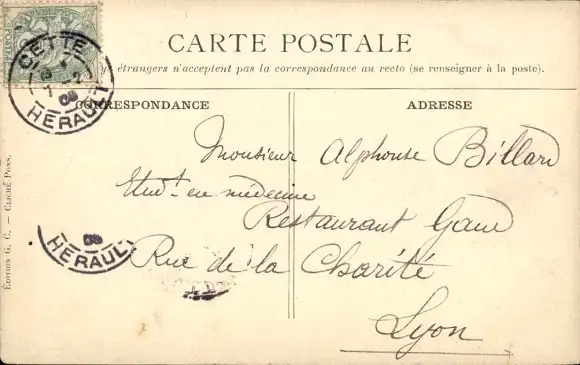 CARTE POSTALE
ys étrangers n'acceptent pas la correspondance au recto (se renseigner à la poste).
CORRESPONDANCE
ADRESSE
CETTE
HERAULT
Monsieur Alphonse Billard
Etud.t en médecine
Restaurant
Rue de la Charité
Lyon
HERAULT
ÉDITION G. C. — CLICHÉ PONS.